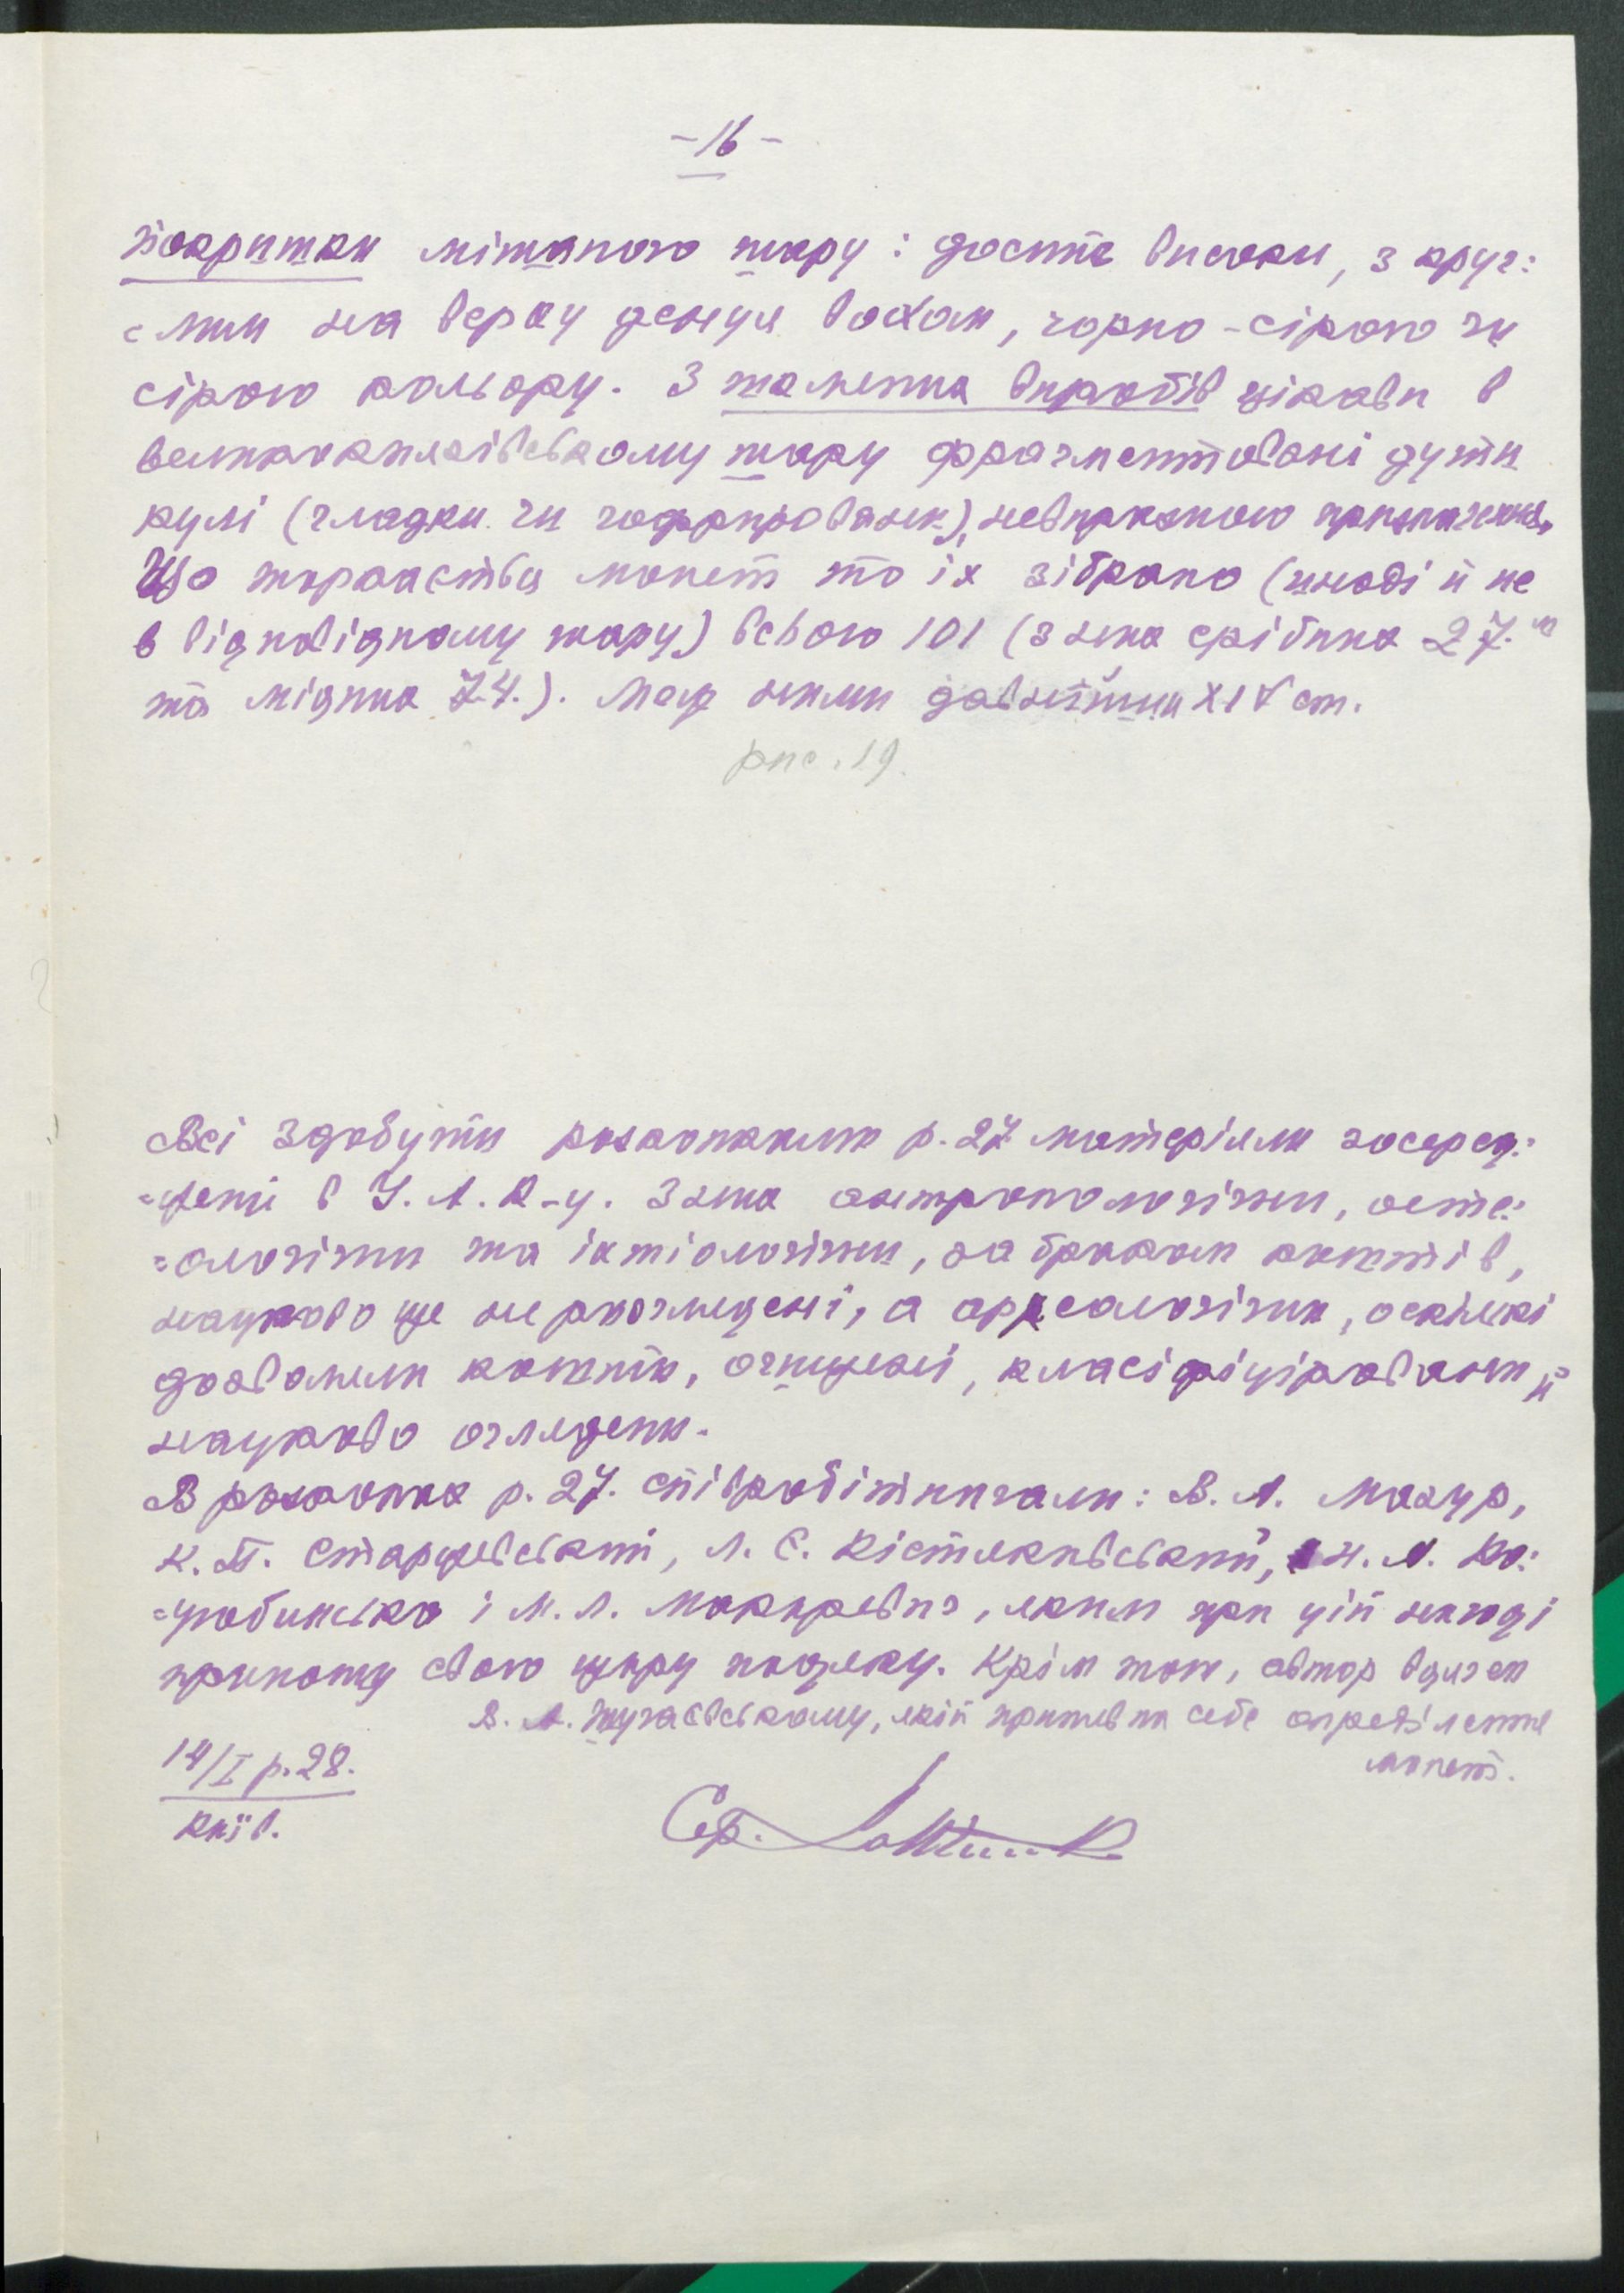 -16-
покритки мішаного шару: досить високи, з круг=
=лим на верху денця вохам, чорно-сірого чи
сірого кольору. З шаленна виробів цікави в
великокнязівському шару фрагментовані дути
кулі (гладки чи гофрировани), невиразного призначення.
Що торкається монет то їх зібрано (иноді й не
в відповідному шару) всього 101 (з них срібних 27.
та мідних 74.). Між ними давнійши XIV ст.
рис. 19.
Всі здобути розкопками р. 27 матеріяли зосеред=
=жені в У.А.К-у. З них антропологічни, осте=
=ологічни та іхтіологічни, за браком коштів,
науково ще не розглянені, а археологічни, оскільки
дозволили кошти, очищені, класіфіціровани й
науково оглядени.
В розкопках р. 27. співробітничали: В. Л. Мазур,
К. П. Старжевський, Л. Є. Кістяковський, Н. Л. Ко=
=цюбинська і М. Л. Макаревич, яким при цій нагоді
приношу свою щиру подяку. Крім того, автор вдячен
В. А. Шугаєвському, якій приняв на себе определіленне
монет.
14/I р. 28.
Київ.
Сер.